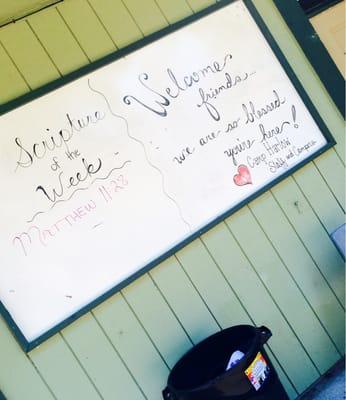 Scripture
of the
Week
Matthew 11:28
Welcome
friends...
we are so blessed
you're here!
Camp Harlow
Staff and Campers